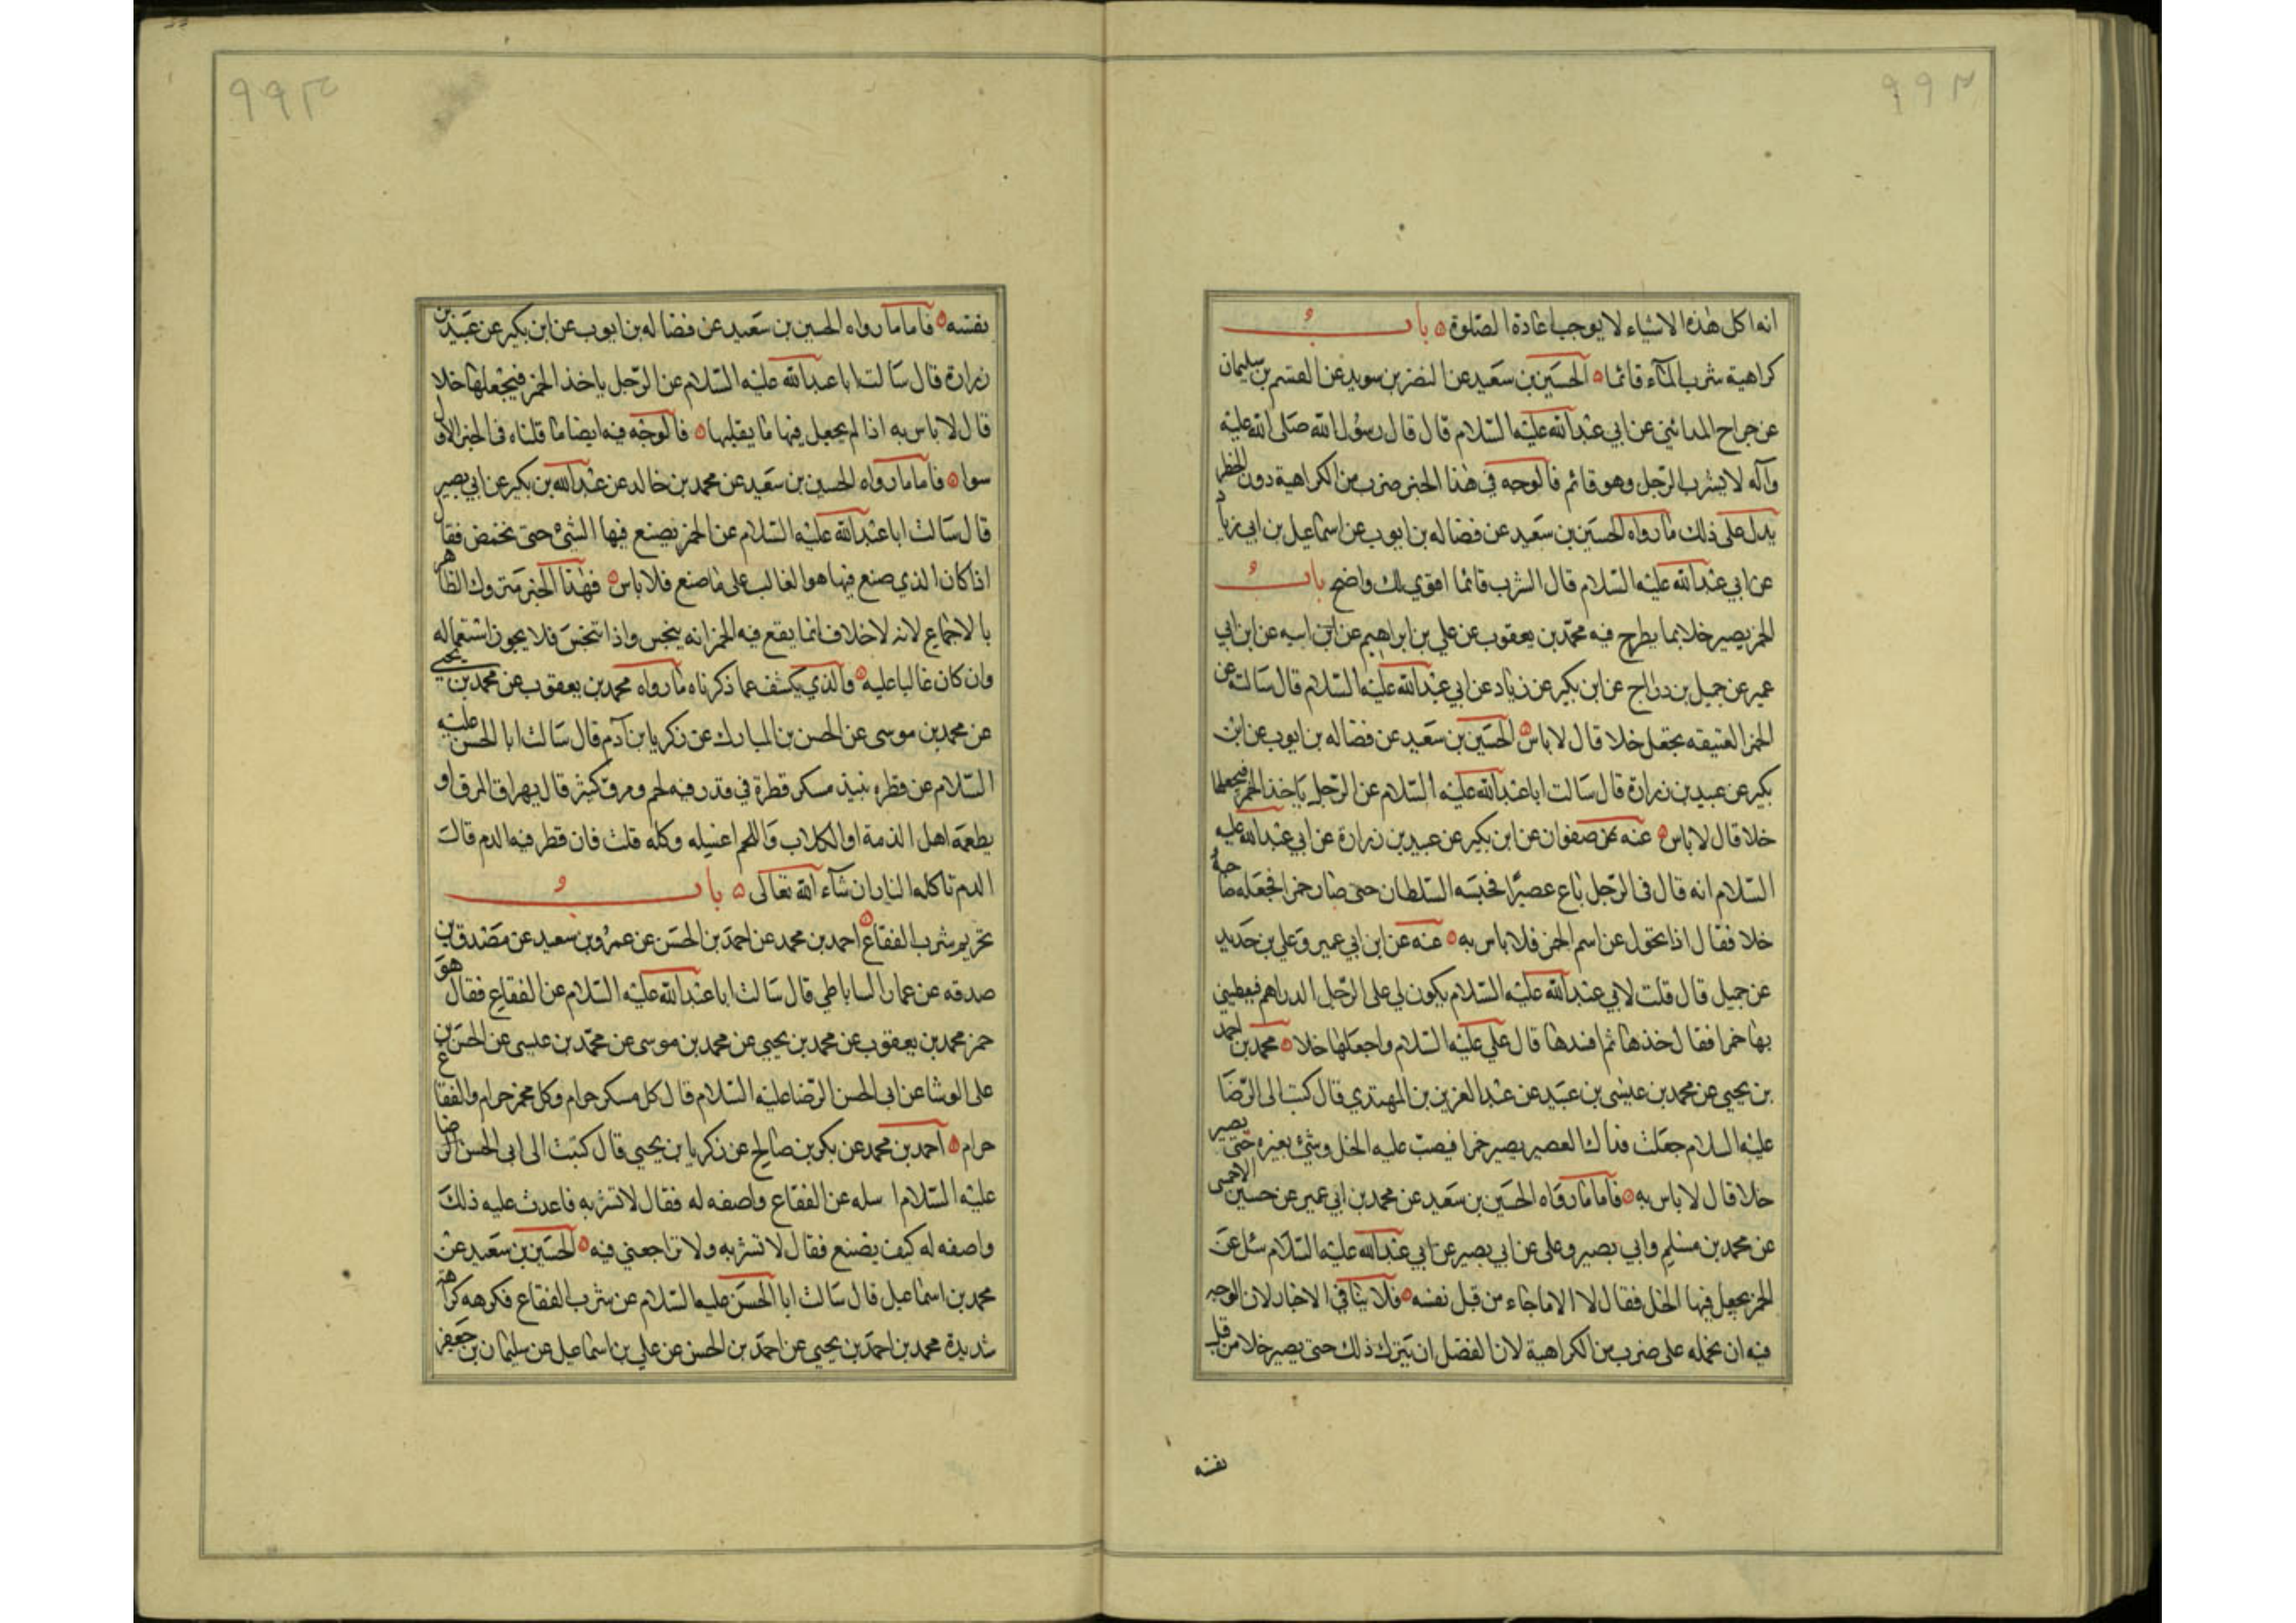 ٩٩٢
انه اكل هذه الاشياء لا يوجب اعادة الصلوة باب
كراهية شرب المآء قائما الحسين بن سعيد عن النضر بن سويد عن القسم بن سليمان
عن جراح المدائني عن ابي عبدالله عليه السلام قال قال رسول الله صلى الله عليه
وآله لا يشرب الرجل وهو قائم فالوجه في هذا الخبر ضرب من الكراهية دون الحظر
يدل على ذلك ما رواه الحسين بن سعيد عن فضاله بن ايوب عن اسماعيل بن ابي زياد
عن ابي عبدالله عليه السلام قال الشرب قائما اقوي لك واضح باب
الخمر يصير خلا بما يطرح فيه محمد بن يعقوب عن علي بن ابراهيم عن ابيه عن ابن ابي
عمير عن جميل بن دراج عن ابن بكير عن زياد عن ابي عبدالله عليه السلام قال سالته عن
الخمر العتيقه يجعل خلا قال لا باس الحسين بن سعيد عن فضاله بن ايوب عن ابن
بكير عن عبيد بن زرارة قال سالت ابا عبدالله عليه السلام عن الرجل ياخذ الخمر فيجعلها
خلا قال لا باس عنه عن صفوان عن ابن بكير عن عبيد بن زرارة عن ابي عبدالله عليه
السلام انه قال في الرجل باع عصيرا فحبسه السلطان حتى صار خمرا فجعله صاحبه
خلا فقال اذا تحول عن اسم الخمر فلا باس به عنه عن ابن ابي عمير وعلي بن حديد
عن جميل قال قلت لابي عبدالله عليه السلام يكون لي على الرجل الدراهم فيعطيني
بها خمرا فقال خذها ثم افسدها قال علي عليه السلام واجعلها خلا محمد بن احمد
بن يحيي عن محمد بن عيسى بن عبيد عن عبد العزيز بن المهتدي قال كتبت الى الرضا
عليه السلام جعلت فداك العصير يصير خمرا فيصب عليه الخل وشئ يغيره حتى يصير
خلا قال لا باس به فاما ما رواه الحسين بن سعيد عن محمد بن ابي عمير عن حسين الاحمسي
عن محمد بن مسلم وابي بصير وعلى عن ابي بصير عن ابي عبدالله عليه السلام سئل عن
الخمر يجعل فيها الخل فقال لا الا ما جاء من قبل نفسه فلا ينافي الاخبار لان الوجه
فيه ان نحمله على ضرب من الكراهية لان الفضل ان يترك ذلك حتى يصير خلا من قبل
نفسه
٩٩٣
نفسه فاما ما رواه الحسين بن سعيد عن فضاله بن ايوب عن ابن بكير عن عبيد بن
زرارة قال سالت ابا عبدالله عليه السلام عن الرجل ياخذ الخمر فيجعلها خلا
قال لا باس به اذا لم يجعل فيها ما يقلبها فالوجه فيه ايضا ما قلناه في الخبر الاول
سوا فاما ما رواه الحسين بن سعيد عن محمد بن خالد عن عبدالله بن بكير عن ابي بصير
قال سالت ابا عبدالله عليه السلام عن الخمر يصنع فيها الشئ حتى تحمض فقال
اذا كان الذي صنع فيها هو الغالب على ما صنع فلا باس فهذا الخبر متروك الظاهر
بالاجماع لانه لا خلاف انما يقع فيه الخمر انه ينجس واذا تنجس فلا يجوز استعماله
وان كان غالبا عليه والذي يكشف عما ذكرناه ما رواه محمد بن يعقوب عن محمد بن يحيى
عن محمد بن موسى عن الحسن بن المبارك عن زكريا بن آدم قال سالت ابا الحسن عليه
السلام عن قطره نبيذ مسكر قطرة في قدر فيه لحم ومرق كثير قال يهراق المرق او
يطعمه اهل الذمة او الكلاب واللحم اغسله وكله قلت فان قطر فيه الدم قال
الدم تاكله النار ان شآء الله تعالى باب
تحريم شرب الفقاع احمد بن محمد عن احمد بن الحسن عن عمرو بن سعيد عن مصدق بن
صدقه عن عمار الساباطي قال سالت ابا عبدالله عليه السلام عن الفقاع فقال هو
خمر محمد بن يعقوب عن محمد بن يحيي عن محمد بن موسى عن محمد بن عيسى عن الحسن بن
على الوشا عن ابي الحسن الرضا عليه السلام قال كل مسكر حرام وكل مخمر حرام والفقاع
حرام احمد بن محمد عن بكر بن صالح عن زكريا بن يحيي قال كتبت الى ابي الحسن الرضا
عليه السلام اسله عن الفقاع واصفه له فقال لا تشربه فاعدت عليه ذلك
واصفه له كيف يصنع فقال لا تشربه ولا تراجعني فيه الحسين بن سعيد عن
محمد بن اسماعيل قال سالت ابا الحسن عليه السلام عن شرب الفقاع فكرهه كراهة
شديدة محمد بن احمد بن يحيي عن احمد بن الحسن عن علي بن اسماعيل عن سليمان بن جعفر